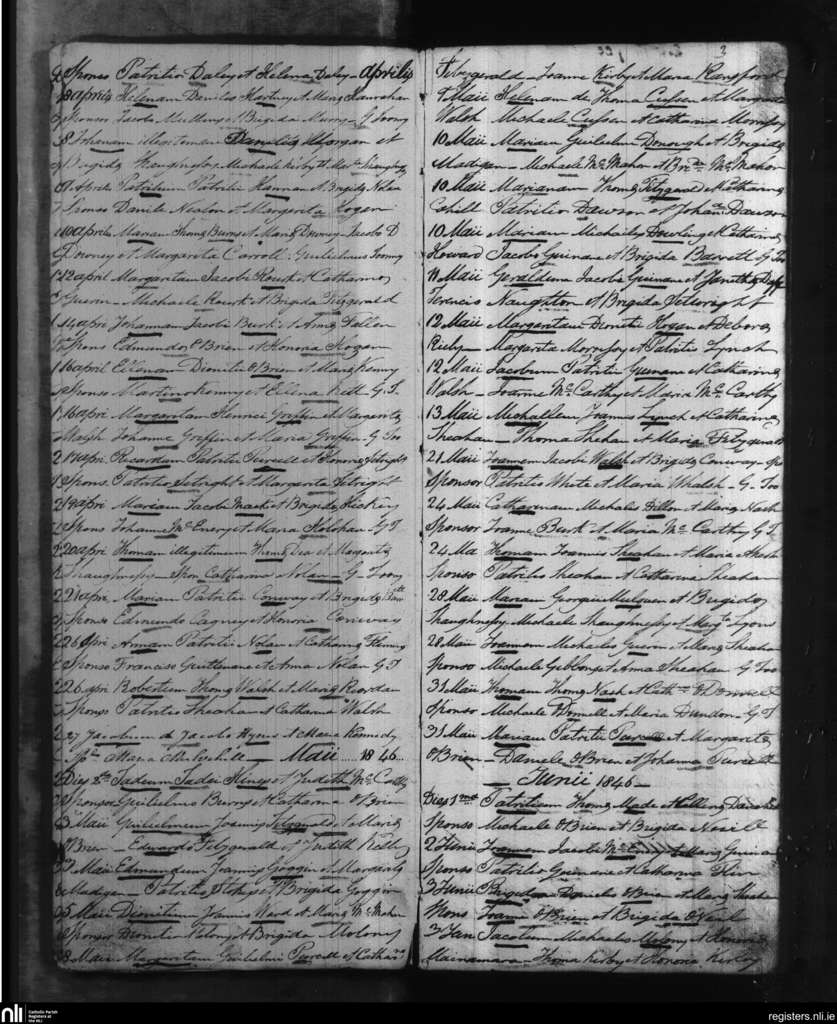 Sponso Patritio Daley et Helena Daley - Aprilis
Aprilis Helenam Danielis Hartney et Maria Hanrahan
Sponso Jacobo et Brigida Murry - G. Toony
Johanam illegitimam Danielis Morgan et
Brigida Michaele Kirby et
Aprilis Patritium Patritii Hannan et Brigida Nolan
Sponso Daniele Nealon et Margarita Hogan
10 aprilis Mariam Thoma Burns et Maria Downey - Jacobo D
Downey et Margarita Carroll Gulielmus Toomy
12 april Margaritam Jacobi Rourk et Catharina
Guerin - Michaele Rourk et Brigida Fitzgerald
14 apri Johannam Jacobi Burk et Anna Fallen
Spons Edmundo O Brien et Honora Hogan
16 april Ellenam Dionitii O Brien et Maria Kenny
Sponso Martino Kenny et Ellena Kett G. T.
16 apri Margaritam Henrici Griffin et Margarita
Johanne Griffin et Maria Griffin - G Too
apri Ricardum Patritii Purcell et Honora Setright
Spons Patritio Setright et Margarita Setright
apri Mariam Jacobi Mack et Brigida Hickey
Spons Johanne McEnery et Maria Holohan - G T
20 apri Thomam illegitimum Thoma Dea et Margarita
Shaughnessy - Spon Catharina Nolan - G - Toony
21 apri Mariam Patritii Conway et Brigida
Spons Edmundo Cagney et Honoria Conway
26 Apri Annam Patritii Nolan et Catharina Fleming
Sponso Francisco Gentleman et Anna Nolan G T
26 apri Robertum Thoma Walsh et Maria Reardan
Sponso Patritio Sheahan et Catharina Walsh
27 Jacobum de Jacobo Hynes et Maria Kennedy
Maria Mulvihill - Maii ..... 1846
Dies 2da Tadeum Tadei Hines et Judith McCarthy
Sponso Guilielmus Burns et Catharina O Brien
3 Maii Guilielmum Joannis Fitzgerald et Maria
O Brien - Edwardo Fitzgerald et Judith Kelly
3 Maii Edmundum Joannis Goggin et Margarita
Madigan - Patritio Stokes et Brigida Goggin
5 Maii Dionitium Joannis Ward et Maria McMahon
Sponso Dionitio Nolony et Brigida Molony
8 Maii Margaritam Guilielmi Purcell et Catharina
2
Fitzgerald - Joanne Kirby et Maria Ransford
9 Maii Helenam de Thoma Cusson et Margarita
Walsh Michaele Cusson et Catharina Morrissy
10 Maii Mariam Guilielmi Donough et Brigida
Madigan - Michaele McMahon et McMahon
10 Maii Mariannam Thoma Fitzgerald et Catharina
Cahill Patritio Dawson et Johan Dawson
10 Maii Mariam Michaelis Dowling et Catharina
Howard Jacobo Guinane et Brigida Barrett G. Too
11 Maii Geraldum Jacobi Guinane et
Terencis Naughton et Brigida Setwright
12 Maii Margaritam Dionitii Hogan et Debora
Kirby - Margarita Morrissy et Patritio Lynch
12 Maii Jacobum Patritii Guinane et Catharina
Walsh - Joanne McCarthy et Maria McCarthy
13 Maii Michaelem Joannis Lynch et Catharina
Sheahan - Thoma Shehan et Maria Fitzgerald
21 Maii Joannem Jacobi Walsh et Brigida Conway - Spo
Sponsor Patritio White et Maria Whalsh - G - Too
24 Maii Catharinam Michaelis Dillon et Maria Nash
Sponsor Joanne Burk - et Maria McCarthy G T
24 Ma Thomam Joannis Sheahan et Maria
Sponso Patritio Sheahan et Catharina Sheahan
28 Maii Mariam Georgii Mulqueen et Brigida
Shaughnessy Michaele Shaughnessy et Lyons
28 Maii Joannem Michaelis Guerin et Maria Sheahan
Sponso Michaele Gibbons et Anna Sheahan G Too
31 Maii Thomam Thoma Nash et Cath O Donnell
Sponso Michaele Donnell et Maria Dundon - G T
31 Maii Mariam Patritii Purcell et Margarita
O Brien - Daniele O Brien et Johanna Purcell
Junii 1846 -
Dies 1mo Patritium Thoma Made et Ellena
Sponso Michaele O Brien et Brigida Nevill
2 Junii Joannem Jacobi et Maria Guinane
Sponso Patritio Guinane et Catharina Flin
3 Junii Brigidam Danielis O Brien et Maria Sheahan
Spons Joanne O Brien et Brigida O Neil
3 Jun Jacobum Michaelis Molony et Honora
Macnamara - Thoma Kirby et Honora Kirby
nli Catholic Parish
Registers at
the NLI
registers.nli.ie